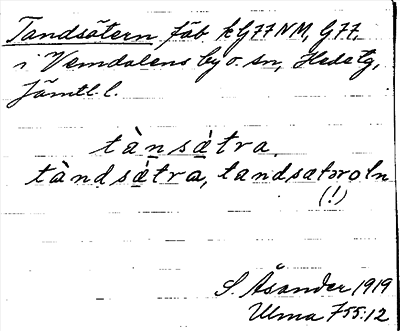 Tandsätern fäb kG77NM, G77,
i Vemdalens by o. sn, Hede tg,
Jämtl. l.
tànsá̱tra
tàndsá̱tra, tandsatəroln
(!)
S. Åsander 1919
Ulma 755:12